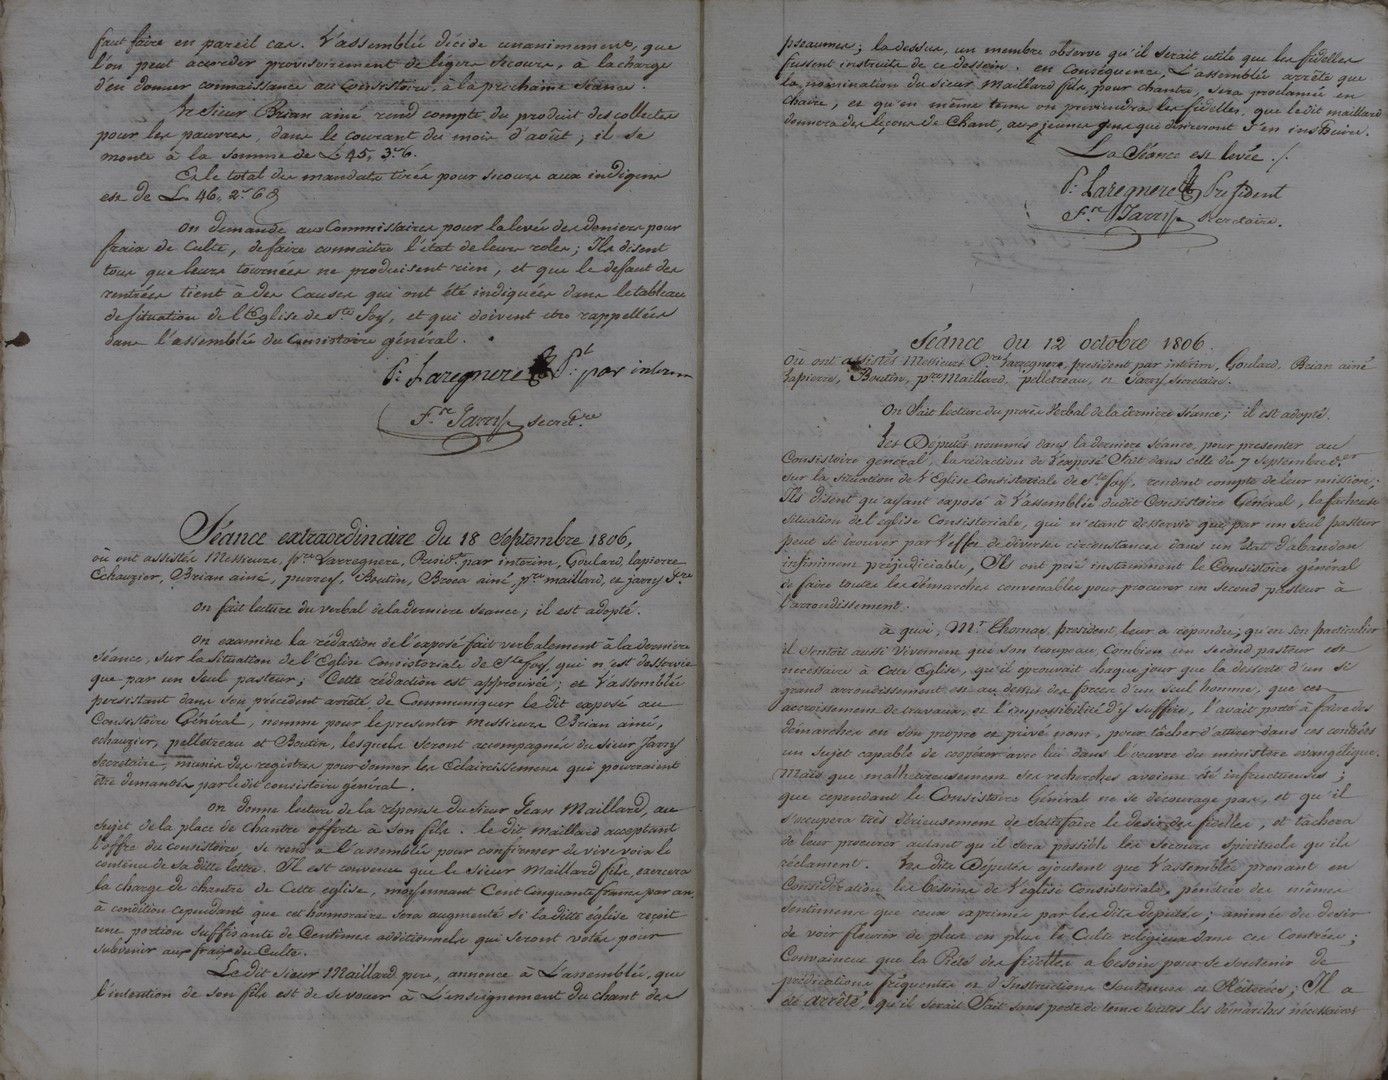 faut faire en pareil cas. L'assemblée décide unanimement, que
l'on peut accorder provisoirement de légers secours, à la charge
d'en donner connaissance au Consistoire, à la prochaine séance.
Le Sieur Brian ainé rend compte du produit des collectes
pour les pauvres, dans le courant du mois d'août; il se
monte à la somme de L 45, 3s 6.
Et le total des mandats tirés pour secours aux indigens
est de L 46, 2s 6d
On demande aux Commissaires pour la levée des deniers pour
frais de Culte, de faire connaitre l'état de leurs roles; Ils disent
tous que leurs tournées ne produisent rien, et que le defaut des
rentrées tient à des Causes qui ont été indiquées dans le tableau
de situation de l'Eglise de Ste Foy, et qui doivent etre rappellées
dans l'assemblée du Consistoire général.
P: Laregnere Pt par interim
Fre Jarry secretre
Séance extraordinaire du 18 Septembre 1806,
où ont assistés Messieurs, pre Lavregnere, Presidt par interim, Goulard, lapierre
Echauzier, Brian ainé, purrey, Boutin, Broca ainé, pre maillard, et jarry Sre
On fait lecture du verbal de la derniere séance; il est adopté.
On examine la rédaction de l'exposé fait verbalement à la derniere
séance, sur la situation de l'Eglise Consistoriale de Ste foy, qui n'est desservie
que par un seul pasteur; Cette rédaction est approuvée; et l'assemblée
persistant dans son précédent arrêté, de Communiquer le dit exposé au
Consistoire Général, nomme pour le presenter Messieurs Brian ainé,
echauzier, pelletreau et Boutin, lesquels seront accompagnés du Sieur Jarry
Secretaire, munis des registres pour donner les Eclaircissemens qui pourraient
être demandés par le dit consistoire général.
On donne lecture de la réponse du Sieur Jean Maillard, au
sujet de la place de chantre offerte à son fils. le dit maillard acceptant
l'offre du Consistoire, se rend à l'assemblée pour confirmer de vive voix le
contenu de sa ditte lettre. Il est convenu que le Sieur Maillard fils exercera
la charge de chantre de Cette eglise, moyennant Cent Cinquante francs par an,
à condition cependant que cet honnoraire sera augmenté si la ditte église reçoit
une portion suffisante de Centimes additionnels qui seront votés pour
subvenir aux frais du Culte.
Le dit Sieur Maillard pere, annonce à L'assemblée, que
l'intention de son fils est de se vouer à L'enseignement du chant des
pseaumes; la dessus, un membre observe qu'il serait utile que les fidelles
fussent instruits de ce dessein. en Conséquence, L'assemblée arrête que
la nomination du sieur Maillard fils, pour chantre, sera proclamée en
chaire, et qu'en même tems on previendra les fidelles, que le dit maillard
donnera des leçons de Chant, aux jeunes gens qui desireront s'en instruire.
La Séance est levée ./.
P: Laregnere President
Fre Jarry Secretaire.
Séance du 12 octobre 1806.
Où ont assistés Messieurs Pre Lavregnere, president par intérim, Goulard, Brian ainé
Lapierre, Boutin, pre Maillard, pelletreau, et Jarry Secretaire.
On fait lecture du procès verbal de la derniere séance; il est adopté.
Les Députés nommés dans la derniere séance, pour presenter au
Consistoire général, la rédaction de l'exposé fait dans celle du 7 Septembre der
sur la situation de L'Eglise Consistoriale de Ste foy, rendent compte de leur mission;
Ils disent qu'ayant exposé à L'assemblée dudit Consistoire Général, la facheuse
situation de l'eglise Consistoriale, qui n'etant desservie que par un seul pasteur
peut se trouver par l'effet de diverses circonstances dans un état d'abandon
infiniment préjudiciable, Ils ont prié instamment le Consistoire général
de faire toutes les démarches convenables pour procurer un second pasteur à
l'arrondissement.
à quoi, Mr Thomas, président, leur a répondu, qu'en son particulier
il sentoit aussi vivement que son troupeau, Combien un second pasteur est
necessaire à Cette Eglise, qu'il eprouvait chaque jour que la deserte d'un si
grand arrondissement est au dessus des forces d'un seul homme, que cet
accroissement de travaux, et l'impossibilité d'y suffire, l'avait porté à faire des
démarches en son propre et privé nom, pour tacher d'attirer dans ces contrées
un sujet capable de coopérer avec lui dans l'oeuvre du ministère evangélique.
Mais que malheureusement ses recherches avoient été infructueuses;
que cependant le Consistoire Général ne se décourage pas, et qu'il
s'occupera très sérieusement de satisfaire le desir des fidelles, et tachera
de leur procurer autant qu'il sera possible les secours spirituels qu'ils
réclament. Les dits Députés ajoutent que L'assemblée prenant en
Considération les besoins de L'église consistoriale, pénétrée des mêmes
sentimens que ceux exprimés par les dits deputés; animée du desir
de voir fleurir de plus en plus le Culte religieux dans ces Contrées;
Convaincue que la Piété des fidelles a besoin pour se soutenir de
prédications fréquentes et d'instructions soutenues et Réiterées; Il a
été arrêté, qu'il serait fait sans perte de tems toutes les démarches nécessaires